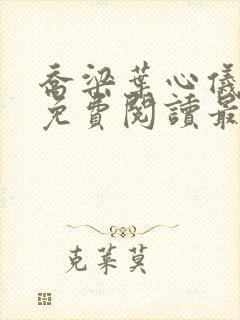 喬梁葉心儀
免費閱讀最
克萊莫